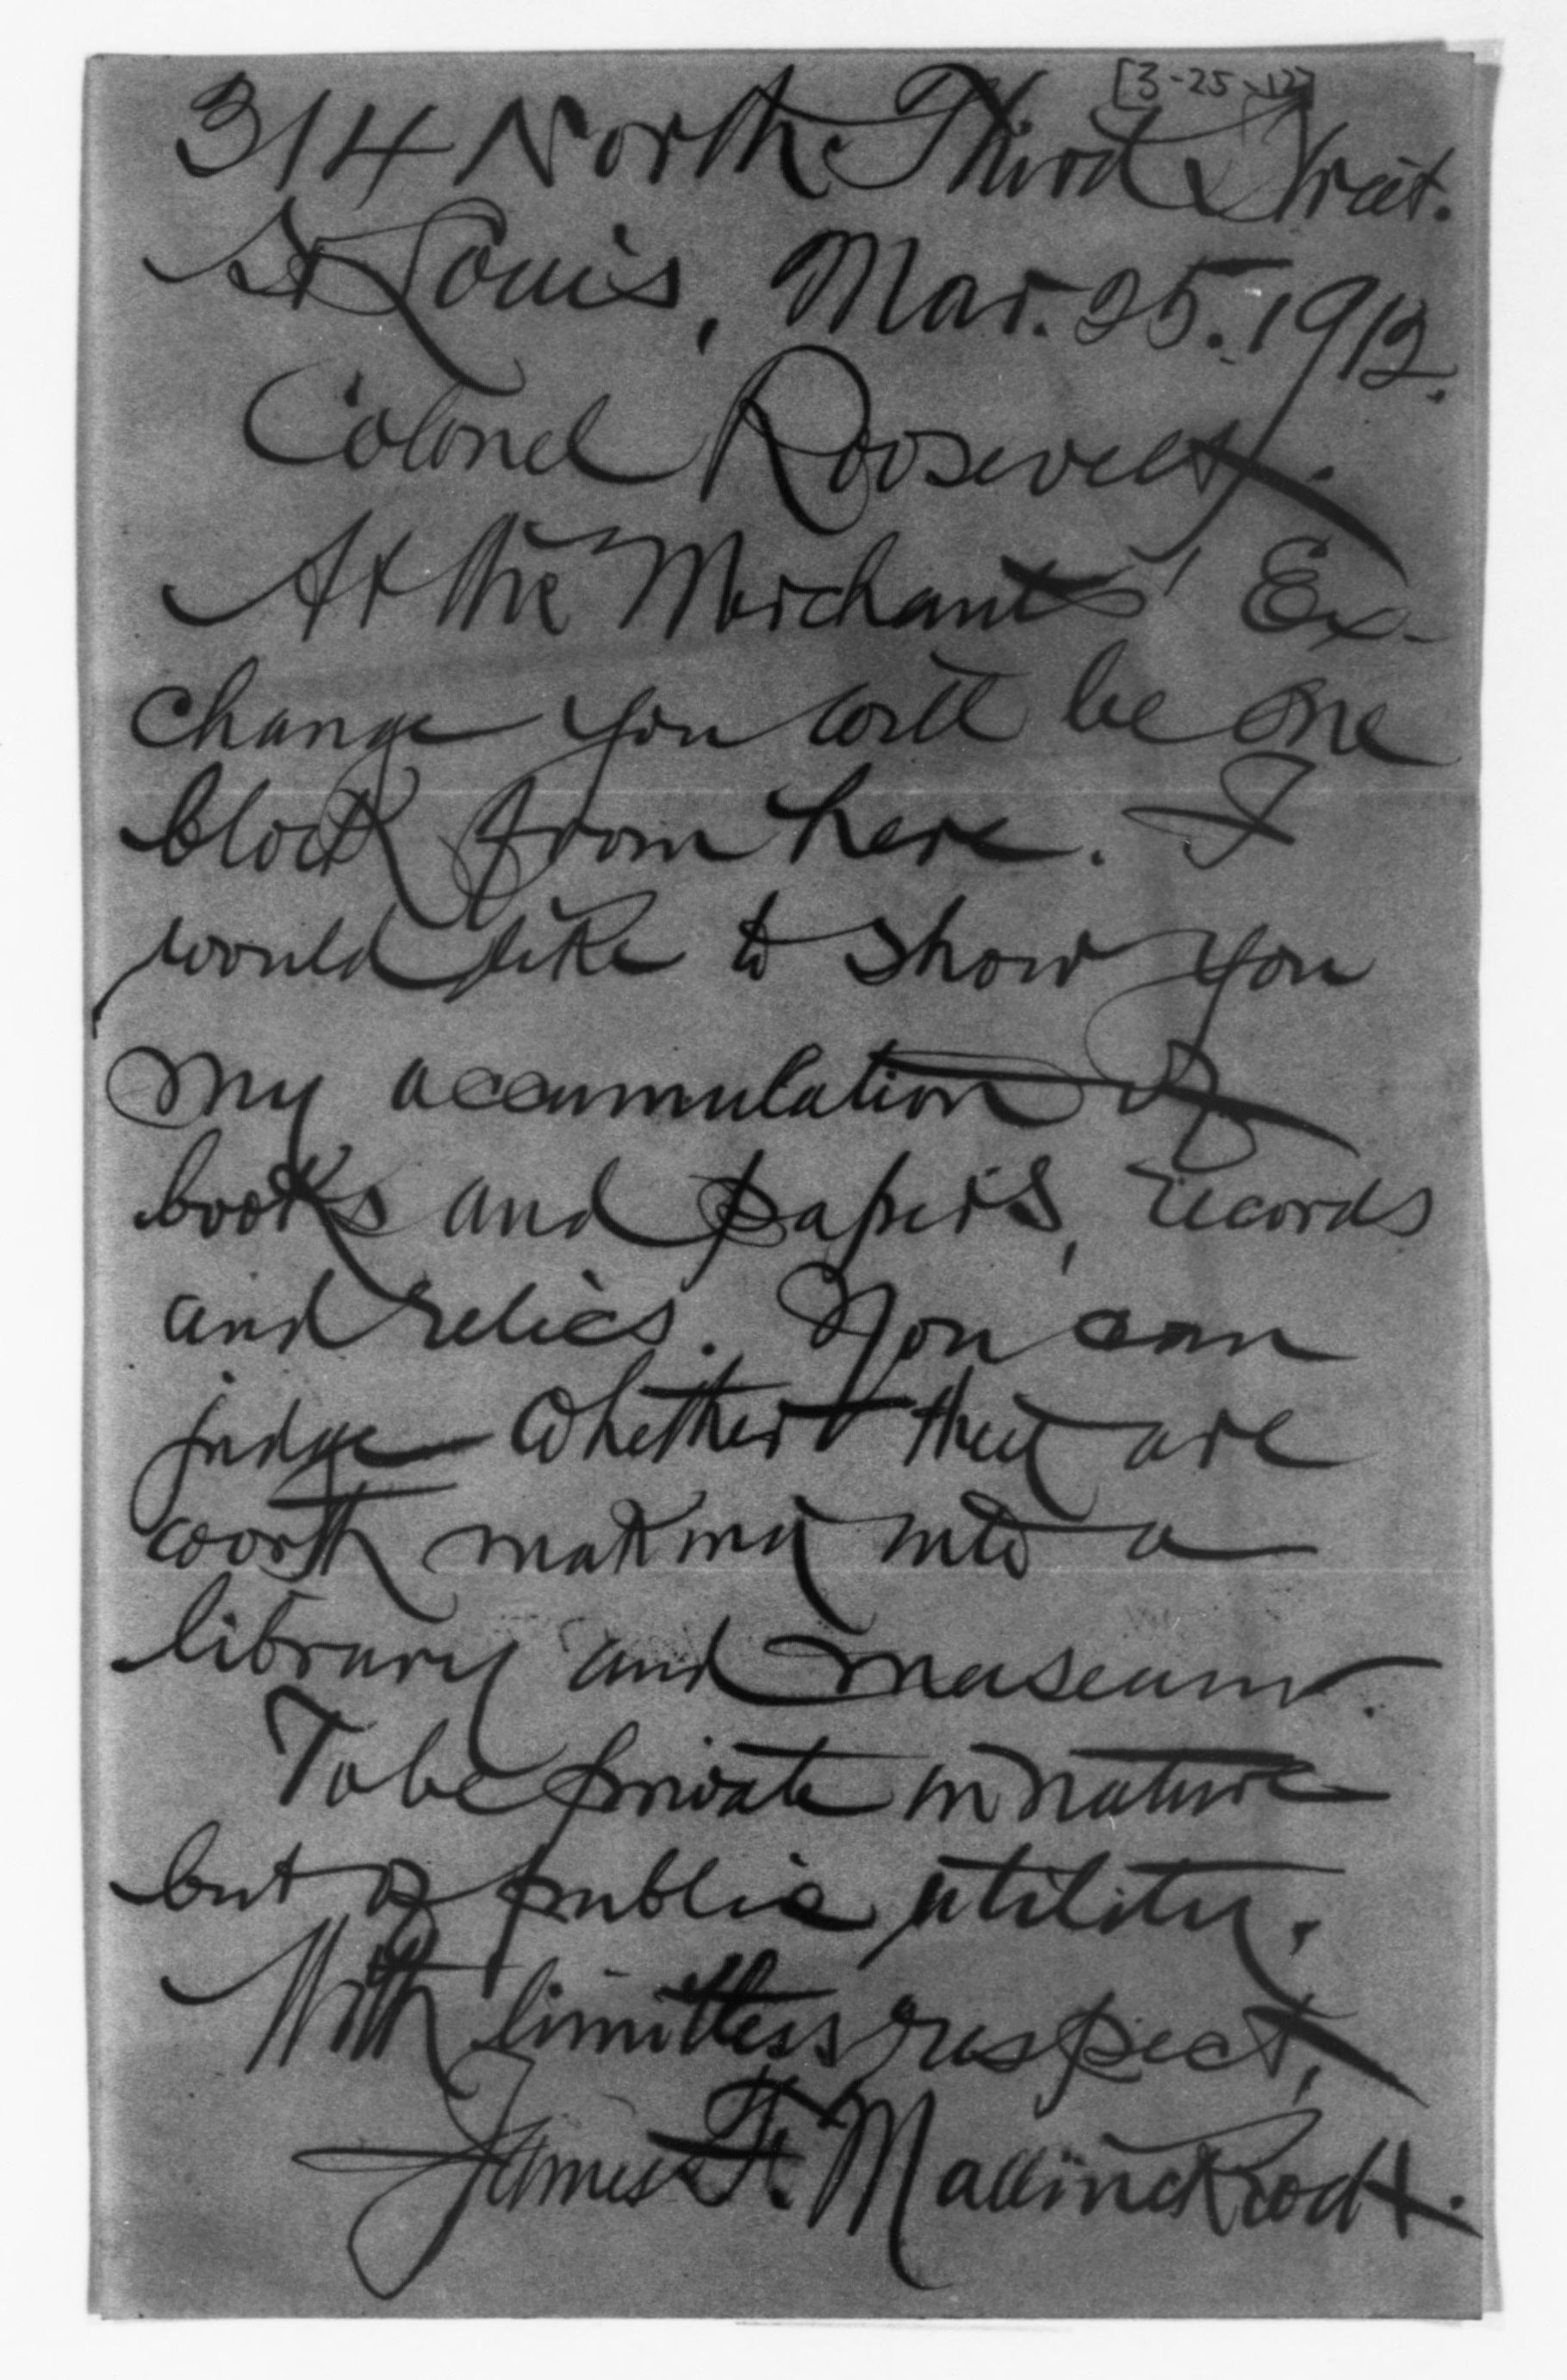 [3-25-12]
314 North Third Street.
St Louis, Mar. 25. 1912.
Colonel Roosevelt.
At the Merchants' Ex-
change you will be one
block from here. I
would like to show you
my accumulation of
books and papers, records
and relics. You can
judge whether they are
worth making into a
library and museum.
To be private in nature
but of public utility.
With limitless respect,
James F. Mallinckrodt.